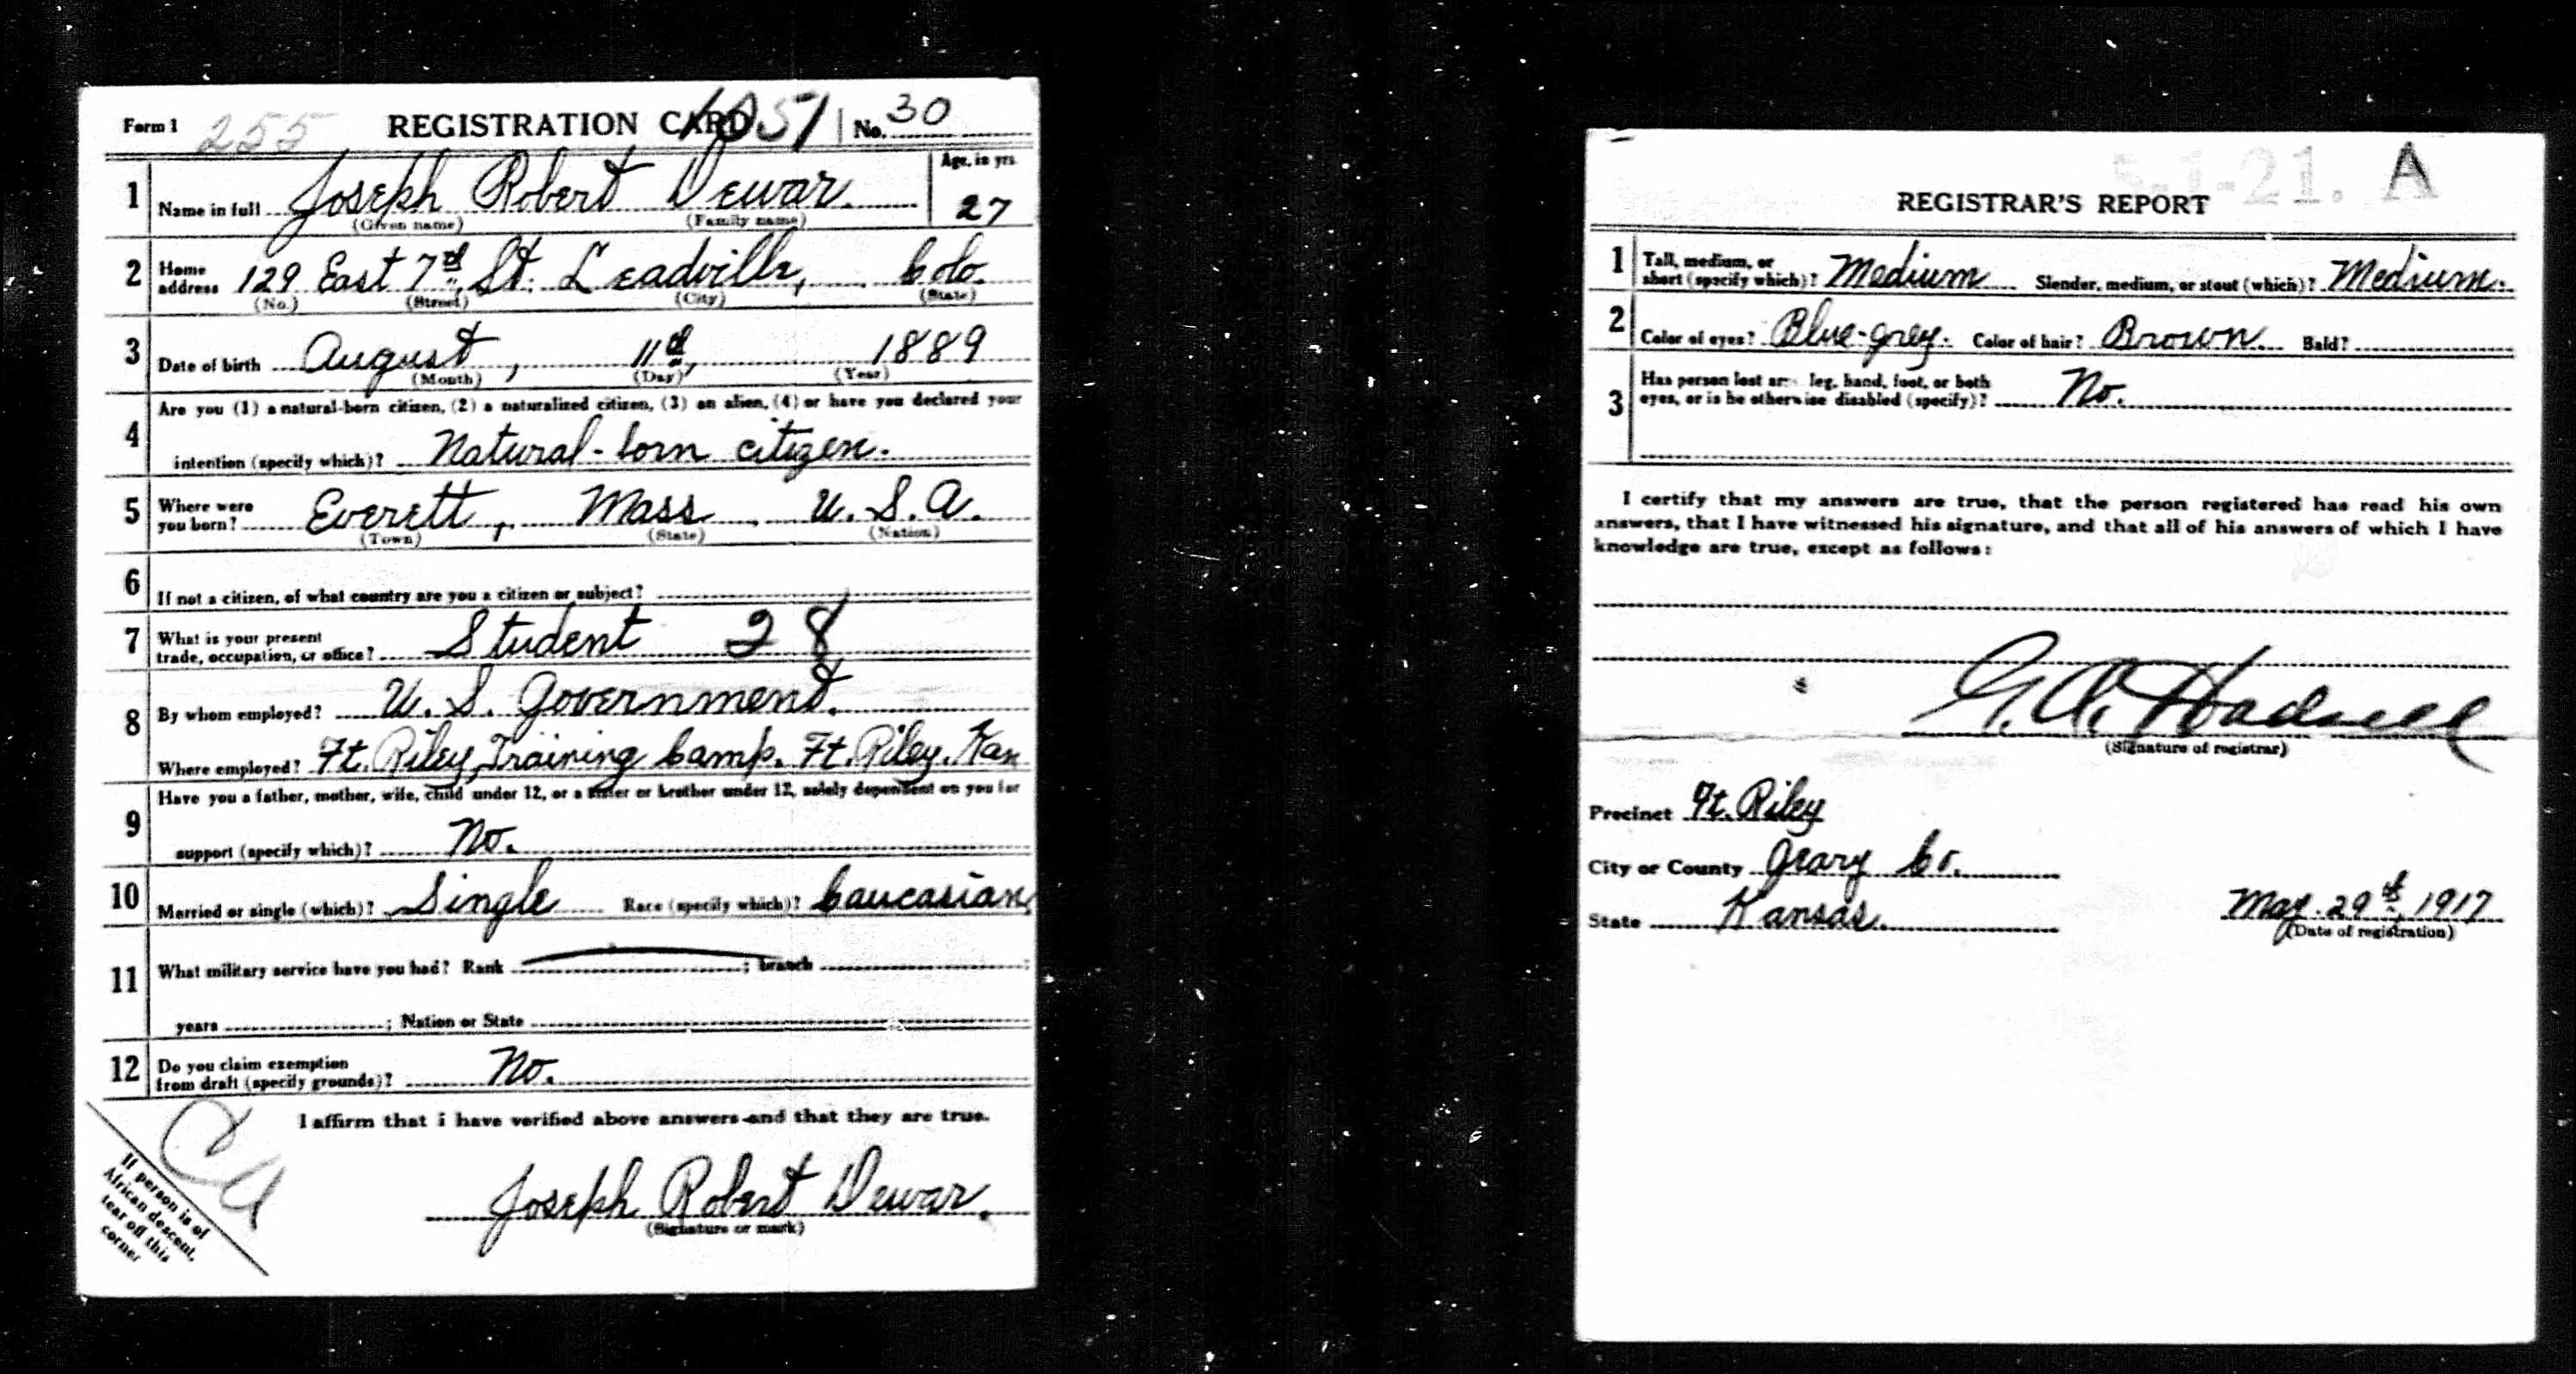 Form 1 255 REGISTRATION CARD 1051 No. 30
1 Name in full Joseph Robert Dewar. Age, in yrs. 27
(Given name) (Family name)
2 Home address 129 East 7th St. Leadville, Colo.
(No.) (Street) (City) (State)
3 Date of birth August, 11th, 1889
(Month) (Day) (Year)
Are you (1) a natural-born citizen, (2) a naturalized citizen, (3) an alien, (4) or have you declared your
4 intention (specify which)? Natural-born citizen.
5 Where were you born? Everett, Mass, U.S.A.
(Town) (State) (Nation)
6 If not a citizen, of what country are you a citizen or subject?
7 What is your present trade, occupation, or office? Student 28
8 By whom employed? U. S. Government.
Where employed? Ft. Riley, Training Camp. Ft. Riley. Kan
Have you a father, mother, wife, child under 12, or a sister or brother under 12, solely dependent on you for
9 support (specify which)? No.
10 Married or single (which)? Single Race (specify which)? Caucasian
11 What military service have you had? Rank ; branch ;
years ; Nation or State
12 Do you claim exemption from draft (specify grounds)? No.
I affirm that i have verified above answers and that they are true.
Joseph Robert Dewar.
(Signature or mark)
If person is of
African descent,
tear off this
corner
5-1-21. A
REGISTRAR'S REPORT
1 Tall, medium, or short (specify which)? Medium Slender, medium, or stout (which)? Medium.
2 Color of eyes? Blue-grey. Color of hair? Brown Bald?
3 Has person lost arm, leg, hand, foot, or both
eyes, or is he otherwise disabled (specify)? No.
I certify that my answers are true, that the person registered has read his own
answers, that I have witnessed his signature, and that all of his answers of which I have
knowledge are true, except as follows:
G. A. Hadsell
(Signature of registrar)
Precinct Ft. Riley
City or County Geary Co.
State Kansas. May. 29th, 1917
(Date of registration)